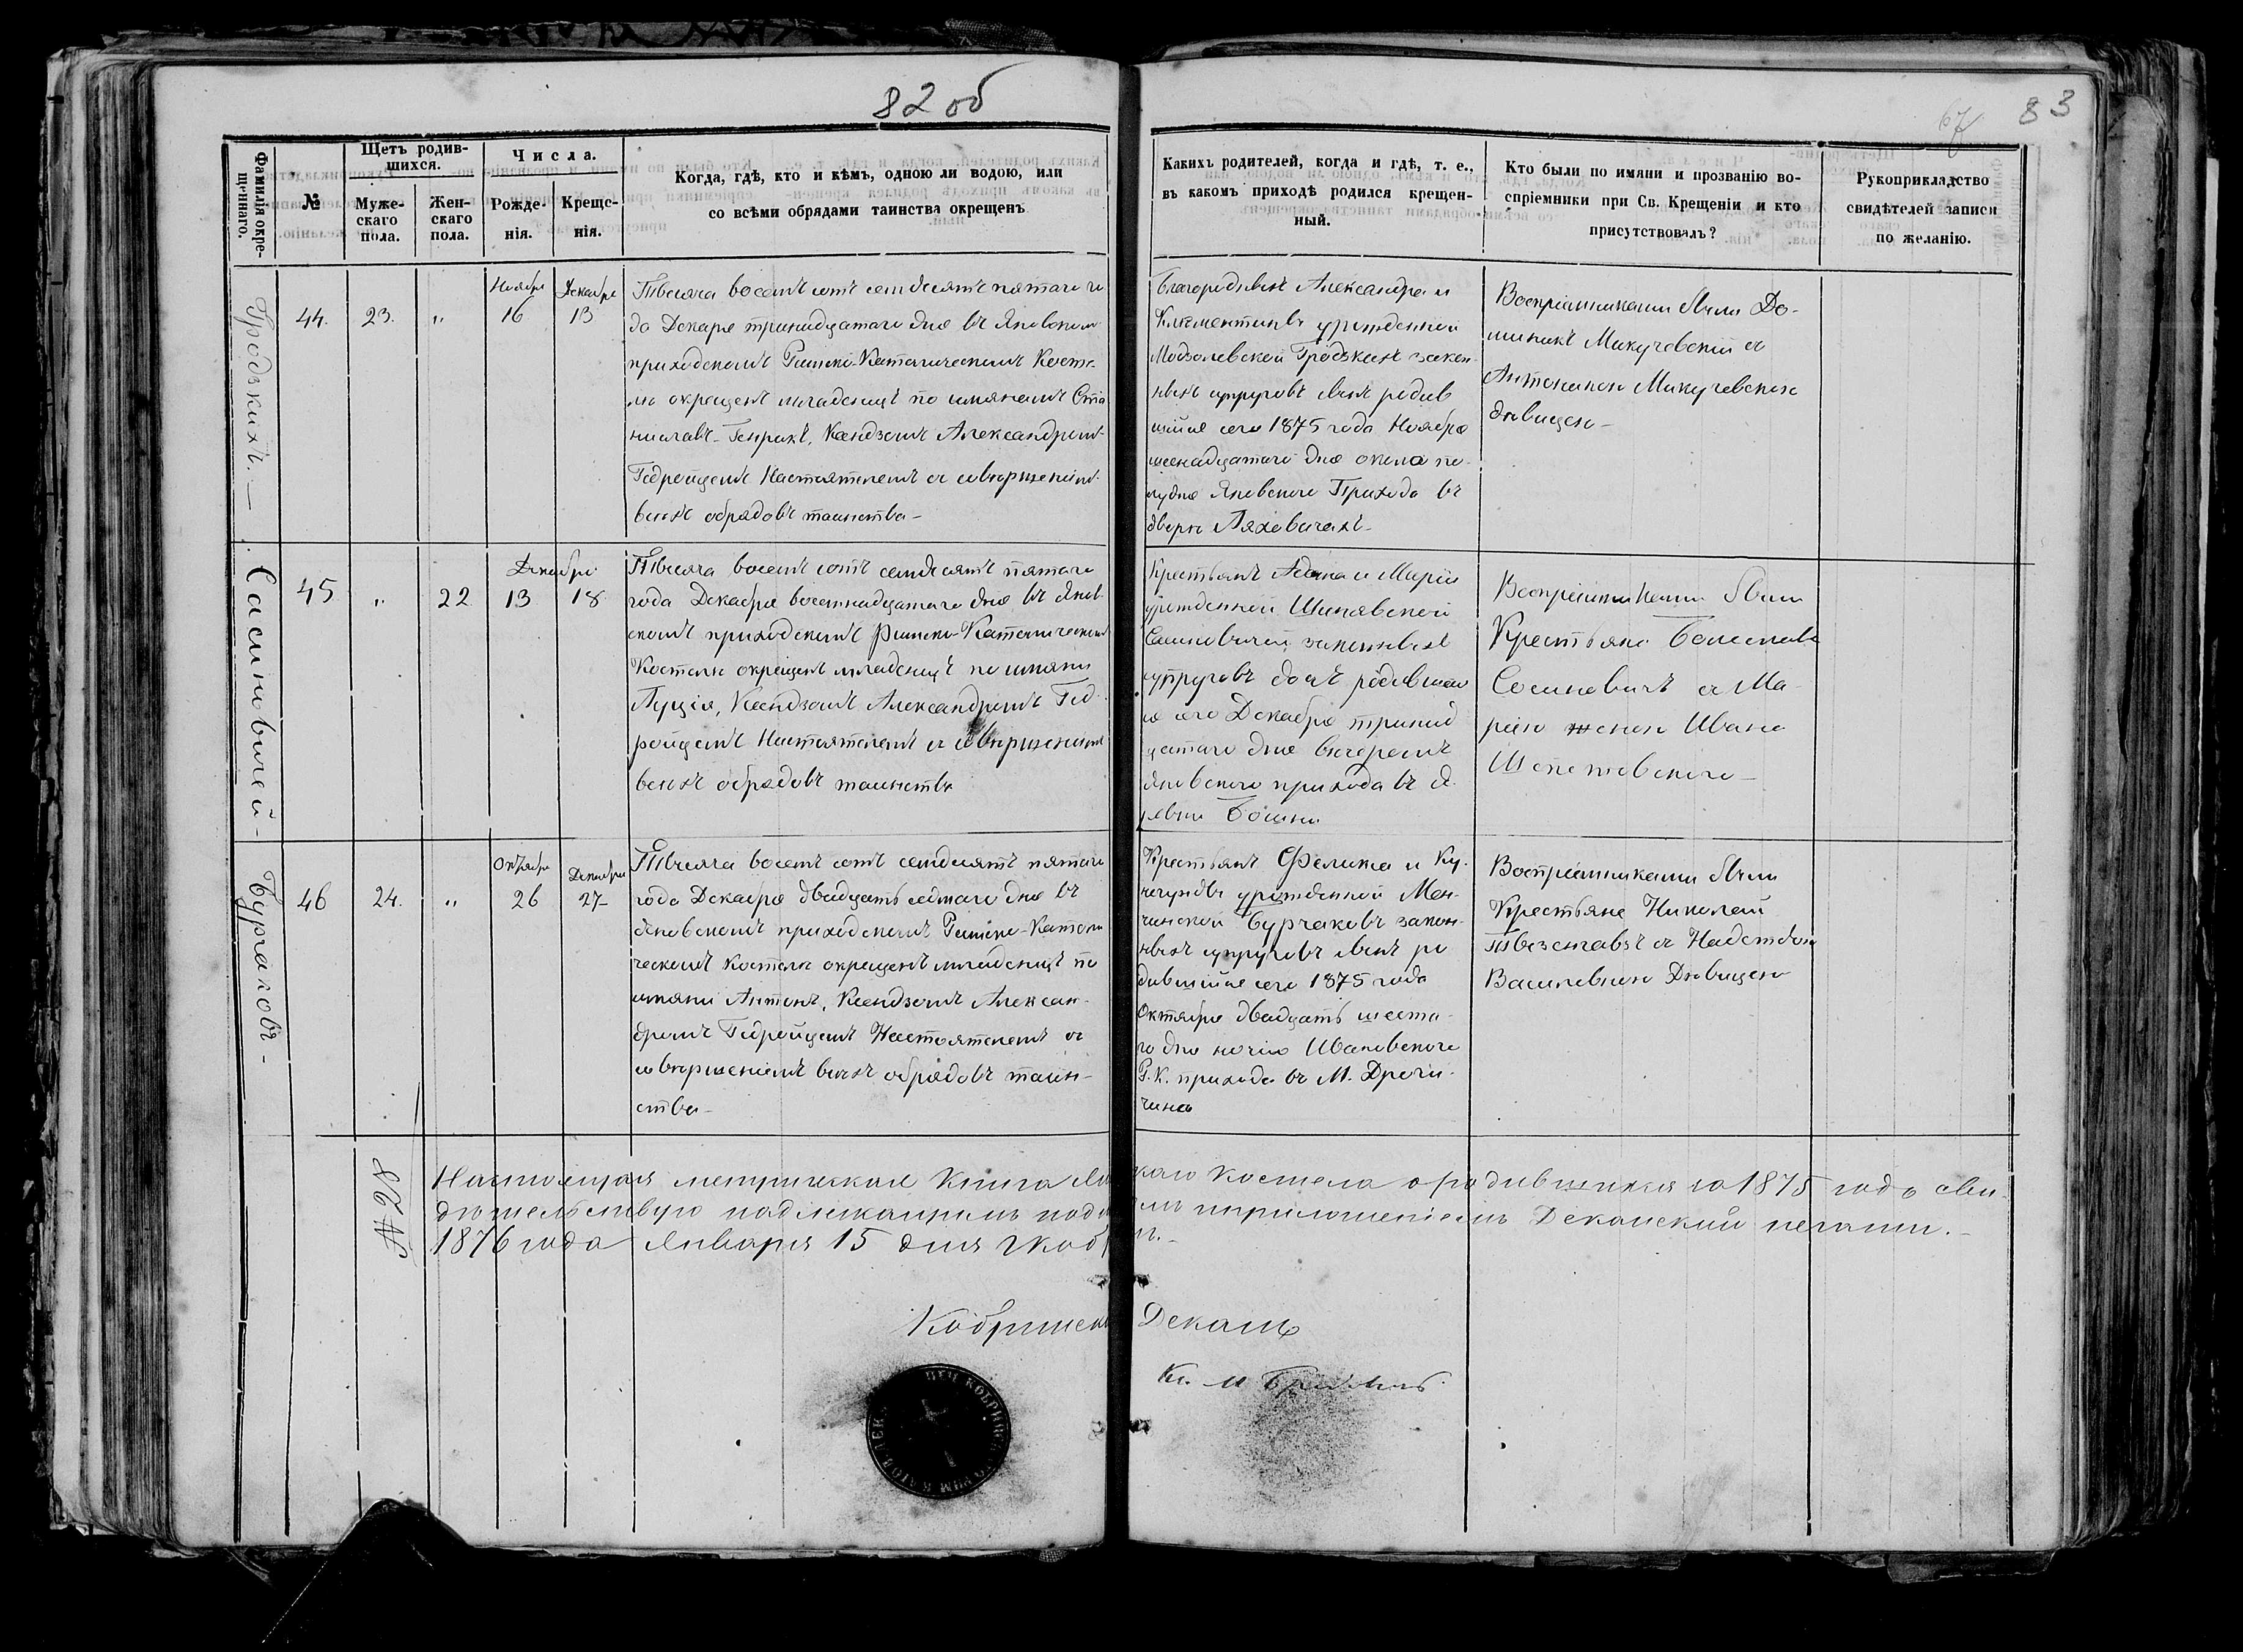 82 об
83
67
Фамилія окре-
щеннаго.
№
Щетъ родив-
шихся.
Муже-
скаго
пола.
Жен-
скаго
пола.
Числа.
Рожде-
нія.
Креще-
нія.
Когда, гдѣ, кто и кѣмъ, одною ли водою, или
со всѣми обрядами таинства окрещенъ
Какихъ родителей, когда и гдѣ, т. е.,
въ какомъ приходѣ родился крещен-
ный.
Кто были по имяни и прозванію во-
спріемники при Св. Крещеніи и кто
присутствовалъ?
Рукоприкладство
свидѣтелей записи
по желанію.
Гродзкихъ.—
44.
23.
"
Ноября
16
Декабря
13
Тысяча восемь сотъ семдесятъ пятаго го
да Декабря тринадцатаго дня въ Яновскомъ
приходскомъ Римско-Католическомъ Косте-
лѣ окрещенъ младенецъ по имянамъ Ста
ниславъ-Генрикъ, Ксендзомъ Александромъ
Гедройцемъ Настоятелемъ съ совершеніемъ
всѣхъ обрядовъ таинства—
Благородныхъ Александра и
Клементины урожденной
Модзолевской Гродзкихъ закон-
ныхъ супруговъ сынъ родив
шійся сего 1875 года Ноября
шеснадцатаго дня около по-
лудня Яновского Прихода въ
дворѣ Ляховичахъ—
Воспріемниками были До-
миникъ Микучевскій съ
Антониною Микучевскою
дѣвицею—
Сасиновичей—
45
"
22
Декабря
13
18
Тысяча восемь сотъ семдесятъ пятаго
года Декабря восемнадцатаго дня въ Янов-
скомъ приходскомъ Римско-Католическомъ
Костелѣ окрещенъ младенецъ по имяни
Луція, Ксендзомъ Александромъ Гед-
ройцемъ Настоятелемъ съ совершеніемъ
всѣхъ обрядовъ таинства
Крестьянъ Адама и Маріи
урожденной
законныхъ
супруговъ дочь родившая
ся сего Декабря тринад
цатаго дня вечеромъ
Яновского прихода въ де
ревни
Воспріемниками были
Крестьяне Болеслав
Сосиновичъ съ Ма-
ріею женою Ивана
Шепетовскаго—
Бурчаковъ-
46
24.
"
Октября
26
Декабря
27
Тысяча восемь сотъ семдесятъ пятаго
года Декабря двадцать седмаго дня въ
Яновскомъ приходскомъ Римско-Католи
ческомъ Костелѣ окрещенъ младенецъ по
имяни Антонъ, Ксендзомъ Алексан-
дромъ Гедройцемъ Настоятелемъ съ
совершеніемъ всѣхъ обрядовъ таин-
ства—
Крестьянъ Феликса и Ку-
негунды урожденной Мен-
чинской Бурчаковъ закон-
ныхъ супруговъ сынъ ро
дившійся сего 1875 года
Октября двадцать шеста-
го дня ночью Ивановскаго
Р.К. прихода въ М. Дроги-
чинѣ
Воспріемниками были
Крестьяне Николай
съ
Василевною Дѣвицею
№ 28
Настоящая метрическая Книга каго Костела о родившихся за 1875 годъ сви-
дѣтельствую надлежащимъ приложеніемъ Деканской печати.—
1876 года Января 15 дня
Кобринскій Деканъ
Кс.